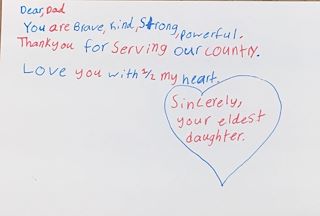 Dear, Dad
You are Brave, kind, Strong, powerful.
Thankyou for serving our country.
Love you with 1/2 my heart.
Sincerely,
your eldest
daughter.